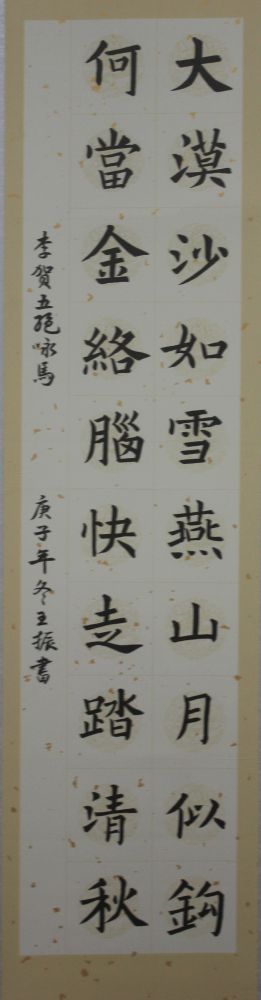 大漠沙如雪燕山月似鈎
何當金絡腦快走踏清秋
李賀五絕咏馬
庚子年冬王振書